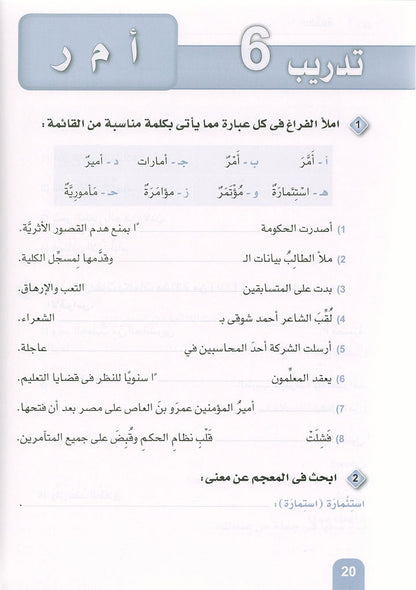 تدريب 6
أ م ر
1 املأ الفراغ فى كل عبارة مما يأتى بكلمة مناسبة من القائمة :
أ - أَمَّرَ ب - أَمْرٌ جـ - أمارات د - أميرُ
هـ - اسْتِئمارَةٌ و - مُؤْتَمَرٌ ز - مؤامَرَةٌ حـ - مَأموريَّةٌ
1) أصدرت الحكومة ًا بمنع هدم القصور الأثريَّة.
2) ملأ الطالِبُ بيانات الـ وقدَّمها لِمسجِّل الكلية.
3) بدت على المتسابقين التعب والإرهاق.
4) لُقِّبَ الشاعر أحمد شوقى بـ الشعراء.
5) أرسلت الشركة أحدَ المحاسبين في عاجلة.
6) يعقد المعلِّمون ًا سنويًا للنظر فى قضايا التعليم.
7) أميرُ المؤمنين عمرَو بنَ العاص على مصر بعد أن فتحها.
8) فَشِلَتْ قَلْبِ نظامِ الحكمِ وقُبِضَ على جميع المتآمرين.
2 ابحث فى المعجم عن معنى :
استِئْمارَة (استِمارَة) :
20